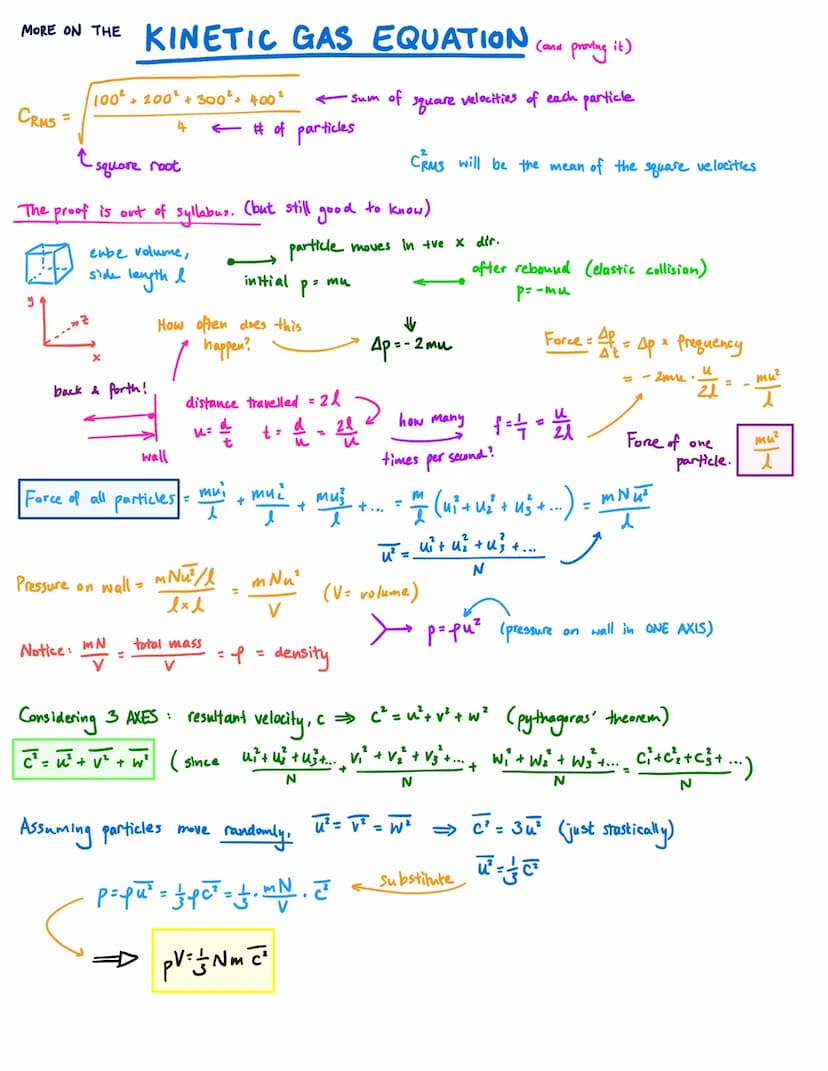 MORE ON THE KINETIC GAS EQUATION (and proving it)
C_RMS = √((100² + 200² + 300² + 400²)/4) ← sum of square velocities of each particle
← # of particles
square root
C²_RMS will be the mean of the square velocities
The proof is out of syllabus. (but still good to know)
cube volume,
side length l
particle moves in +ve x dir.
initial p = mu
after rebound (elastic collision)
p = -mu
y
z
x
How often does this
happen?
⇓
Δp = -2mu
Force = Δp/Δt = Δp × frequency
= -2mu · u/2l = - mu²/l
back & forth!
wall
distance travelled = 2l
u = d/t t = d/u = 2l/u
how many
times per second?
f = 1/T = u/2l
Force of one
particle.
mu²/l
Force of all particles = mu₁²/l + mu₂²/l + mu₃²/l + ... = m/l (u₁² + u₂² + u₃² + ...) = mNu̅²̅/l
u̅²̅ = (u₁² + u₂² + u₃² + ...)/N
Pressure on wall = (mNu̅²̅/l)/(l×l) = mNu²/V (V = volume)
p = ρu² (pressure on wall in ONE AXIS)
Notice: mN/V = total mass/V = ρ = density
Considering 3 AXES: resultant velocity, c ⇒ c² = u² + v² + w² (pythagoras' theorem)
c̅²̅ = u̅²̅ + v̅²̅ + w̅²̅ (since (u₁² + u₂² + u₃² + ...)/N + (v₁² + v₂² + v₃² + ...)/N + (w₁² + w₂² + w₃² + ...)/N = (c₁² + c₂² + c₃² + ...)/N)
Assuming particles move randomly, u̅²̅ = v̅²̅ = w̅²̅ ⇒ c̅²̅ = 3u̅²̅ (just stastically)
u̅²̅ = 1/3 c̅²̅
substitute
p = ρu̅²̅ = 1/3 ρc̅²̅ = 1/3 · mN/V · c̅²̅
⇒ pV = 1/3 Nm c̅²̅